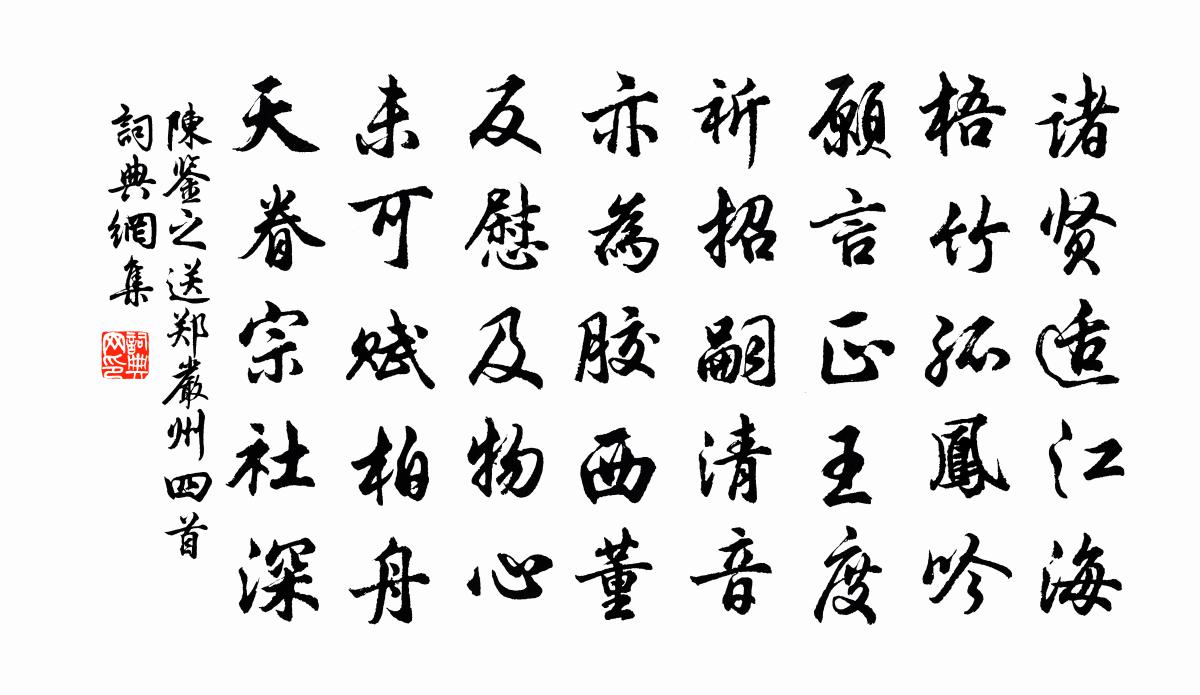 诸贤适江海
梧竹孤鳳吟
願言正王度
祈招嗣清音
亦為胶西董
反慰及物心
未可赋柏舟
天眷宗社深
陳鉴之送郑嚴州四首
詞典網集
詞典